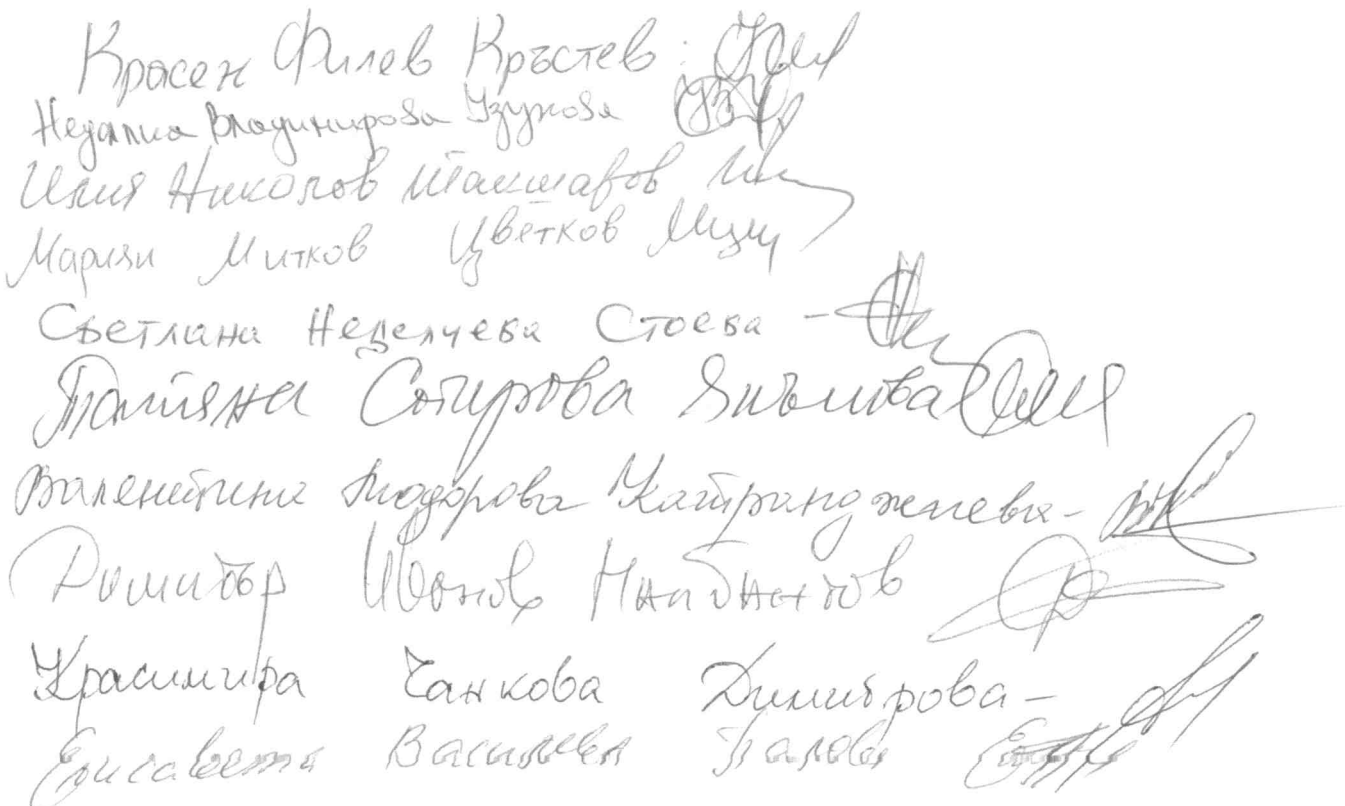 Красен Филев Кръстев:
Недялка Владимирова Узунова
Илия Николов
Мариян Митков Цветков
Светлана Неделчева Стоева -
Татяна Сотирова
Валентина Тодорова Катранджиева -
Димитър Иванов
Красимира Чанкова Димитрова -
Елисавета Василева